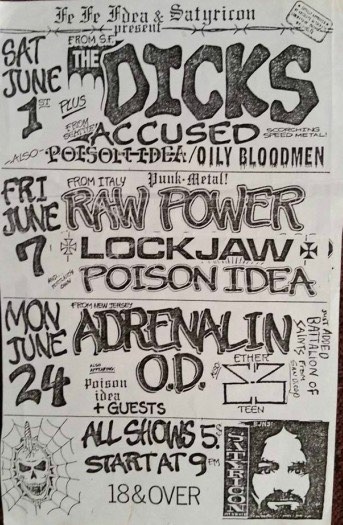 Fe Fe Fdea & Satyricon
present
SAT
JUNE
1ST
PLUS
FROM S.F.
THE DICKS
FROM SEATTLE
ACCUSED
SCORCHING
SPEED METAL!
-ALSO- POISON IDEA/OILY BLOODMEN
FRI
JUNE
7
FROM ITALY
Punk-Metal!
RAW POWER
LOCKJAW
POISON IDEA
MON
JUNE
24
FROM NEW JERSEY
ADRENALIN
O.D.
ALSO
APPEARING
Poison
idea
+ GUESTS
ETHER
TEEN
JUST ADDED
BATTALION OF
SAINTS FROM
SAN DIEGO
ALL SHOWS 5.
START AT 9 PM
18 & OVER
SATYRICON